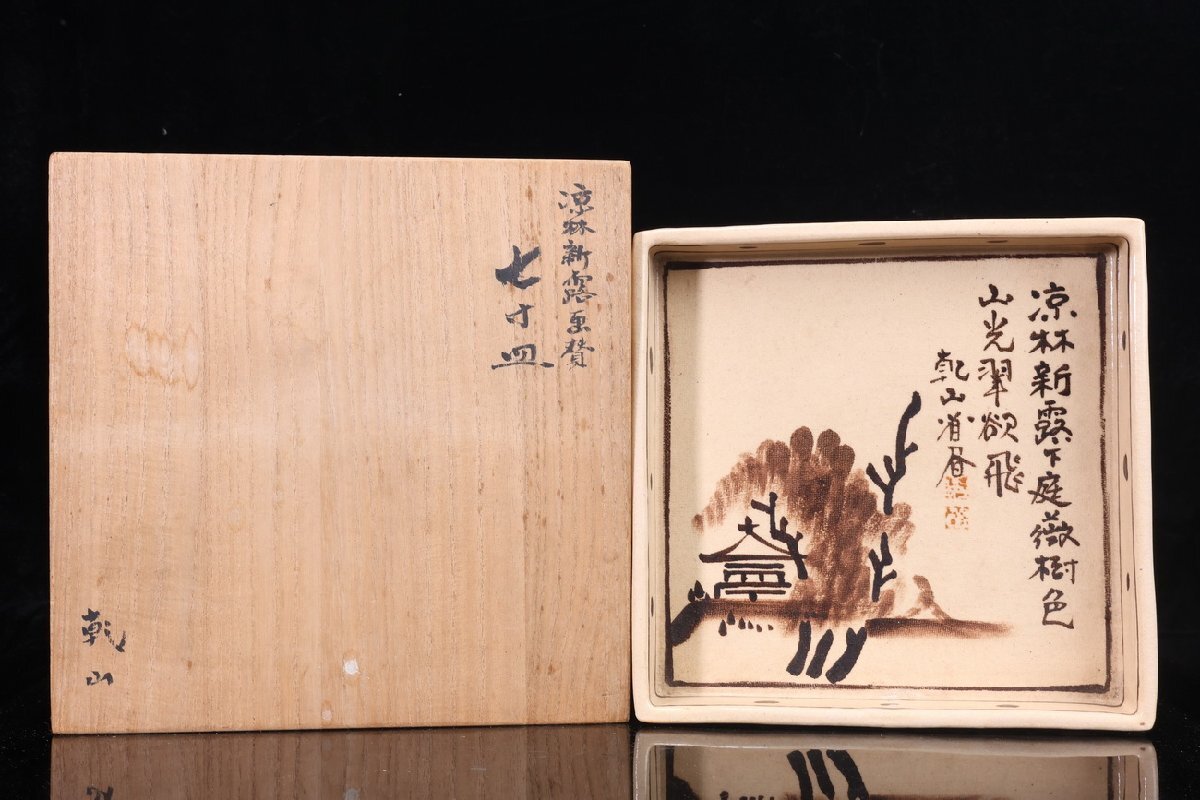 凉林新露画賛
七寸皿
乾山
凉林新露下庭薇樹色
山光翠欲飛
乾山省書